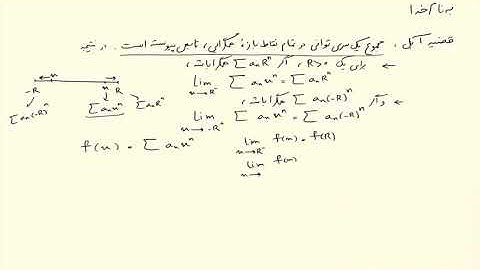 به نام خدا
قضیه آبل . مجموع یک سری توانی در تمام نقاط بازهٔ همگرایی، تابعی پیوسته است . در نتیجه
← برای یک R>0 ، اگر ∑ aₙRⁿ همگرا باشد ،
lim_{x→R⁻} ∑ aₙxⁿ = ∑ aₙRⁿ
← و اگر ∑ aₙ(-R)ⁿ همگرا باشد ،
lim_{x→-R⁺} ∑ aₙxⁿ = ∑ aₙ(-R)ⁿ
-R x x R
∑ aₙ(-R)ⁿ ∑ aₙxⁿ ∑ aₙRⁿ
f(x) = ∑ aₙxⁿ lim_{x→R⁻} f(x) = f(R)
lim_{x→} f(x)